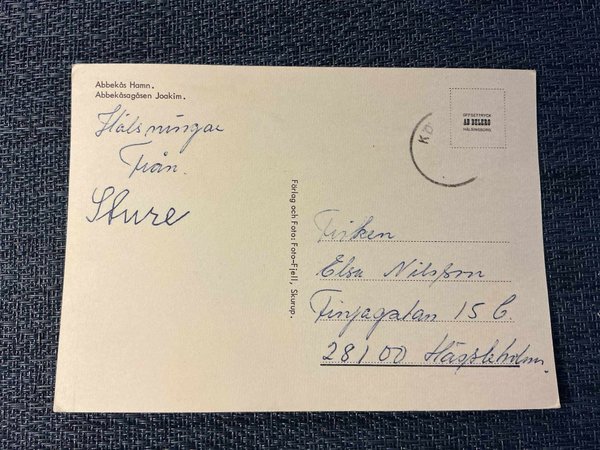 Abbekås Hamn.
Abbekåsagåsen Joakim.
Hälsningar
Från.
Sture
Förlag och Foto: Foto-Fjell, Skurup.
OFFSETTRYCK
AB BULERO
HÄLSINGBORG
Fröken
Elsa Nilsson
Finjagatan 15 C.
28100 Hässleholm.